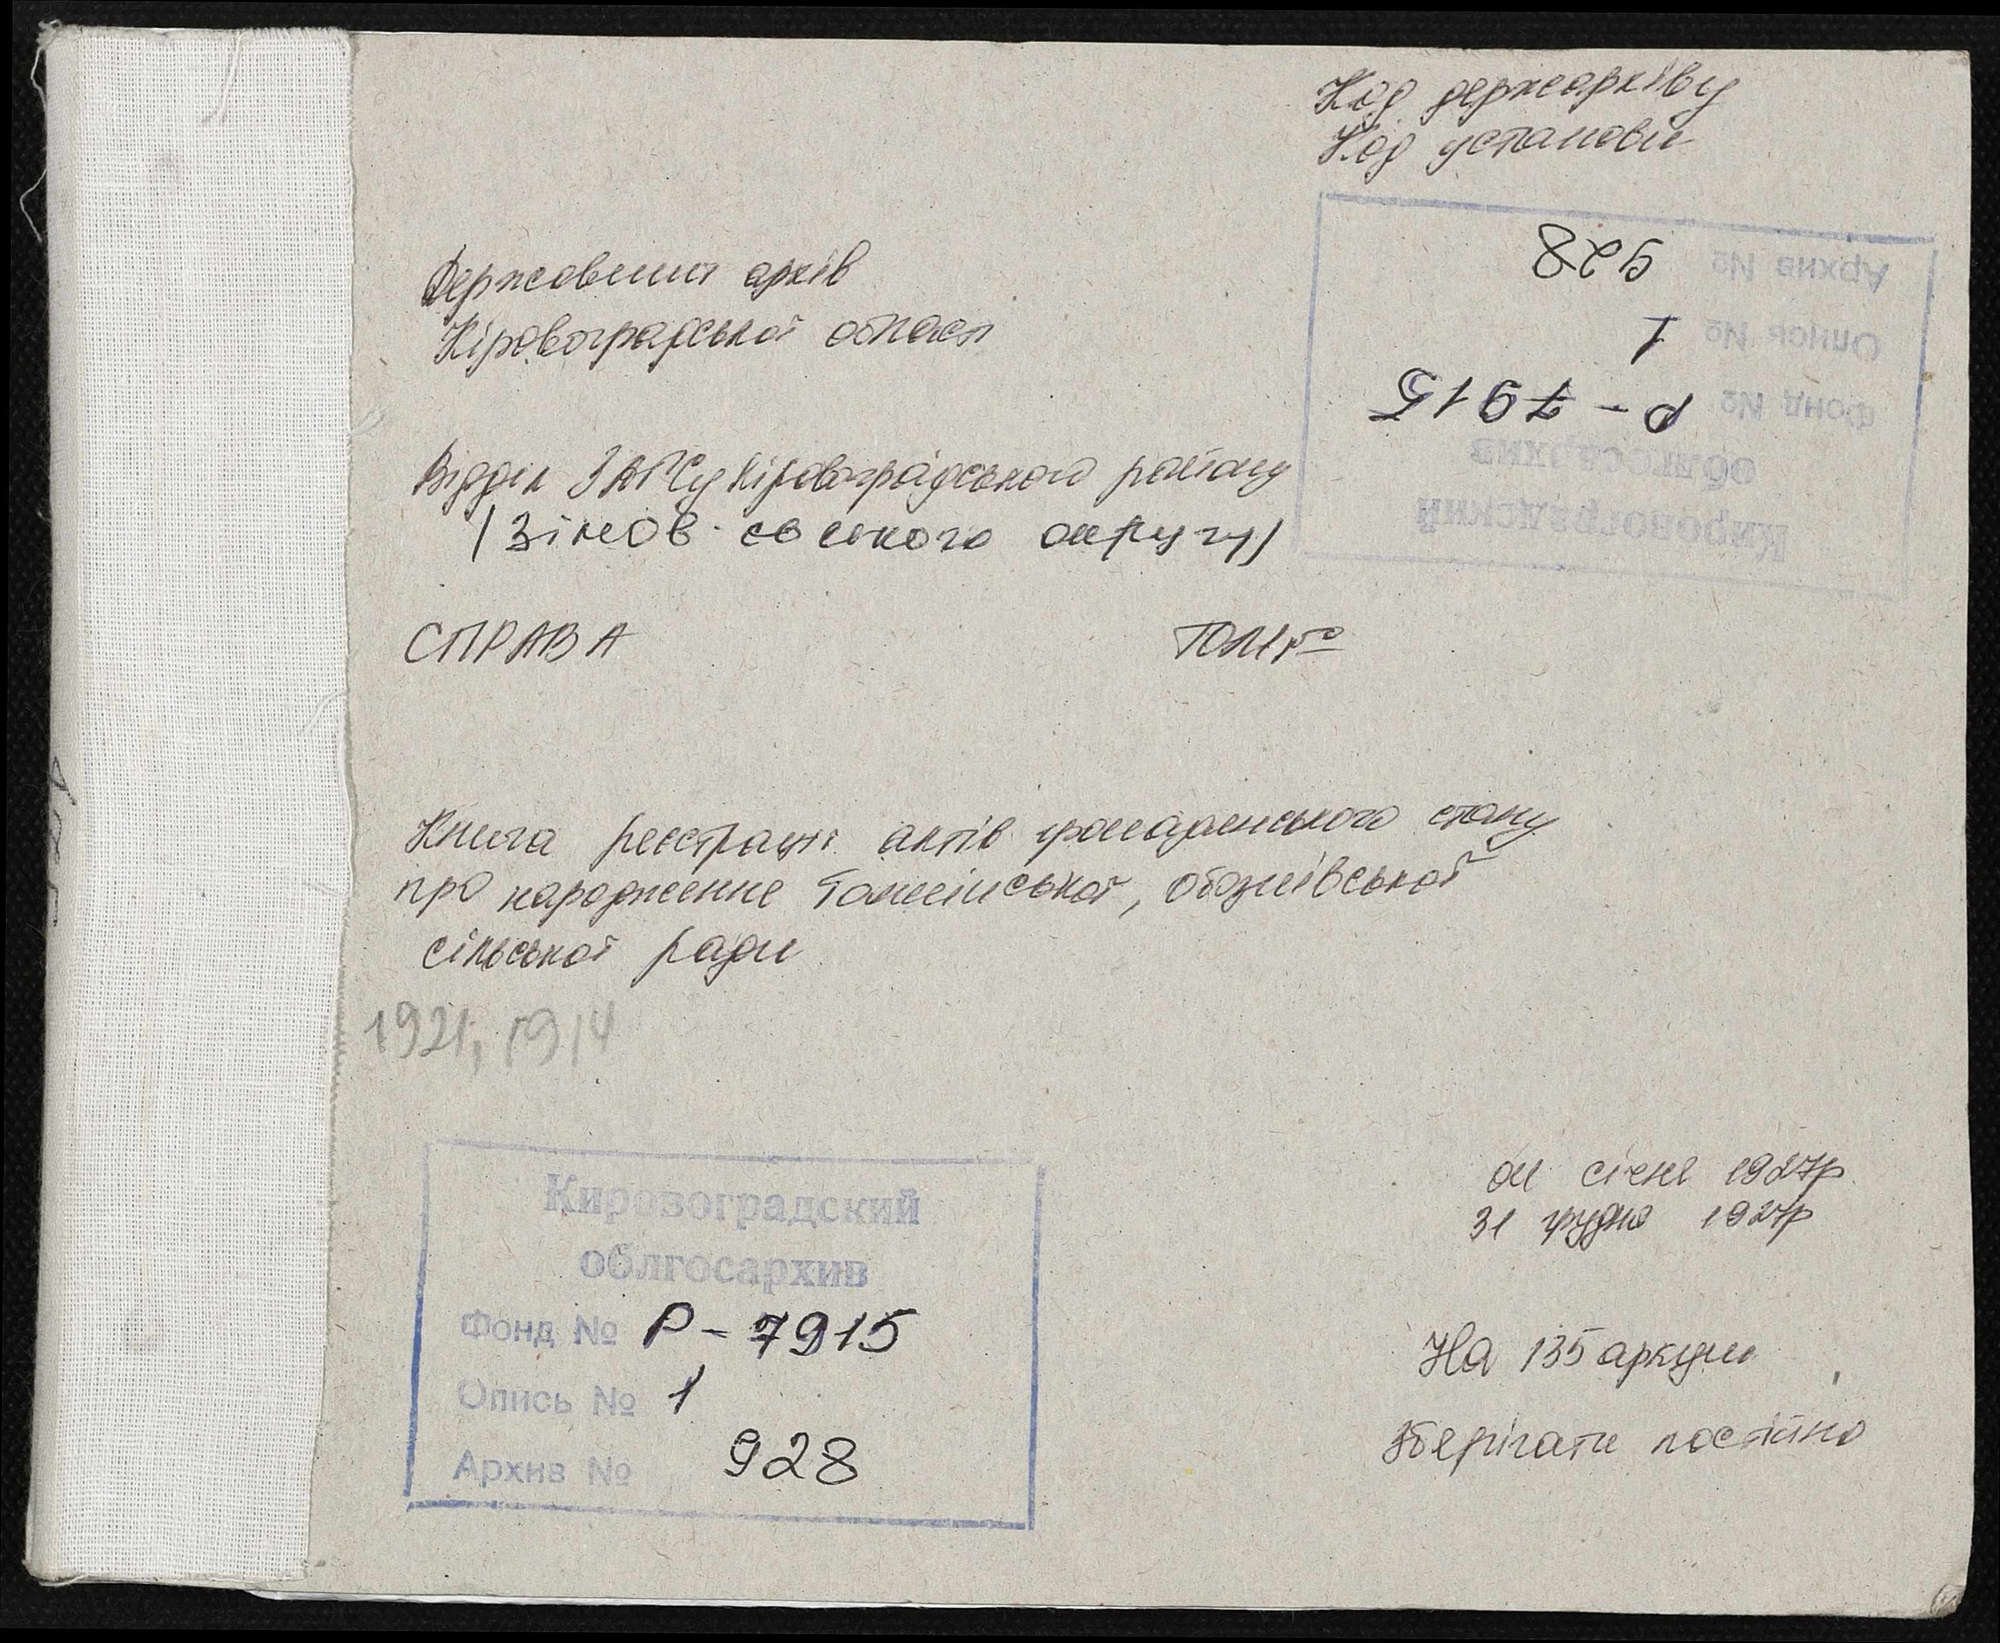 Код держархіву
Код установи
Кировоградский
облгосархив
Фонд № Р-7915
Опись № 1
Архив № 928
Державний архів
Кіровоградської області
Відділ ЗАГСу Кіровоградського району
/Зінов-євського округу/
СПРАВА
ТОМ №
Книга реєстрації актів громадянського стану
про народження сільської ради
1921, 1914
01 січня 1927р
31 грудня 1927р
На 135 аркуш
Зберігати постійно
Кировоградский
облгосархив
Фонд № Р-7915
Опись № 1
Архив № 928